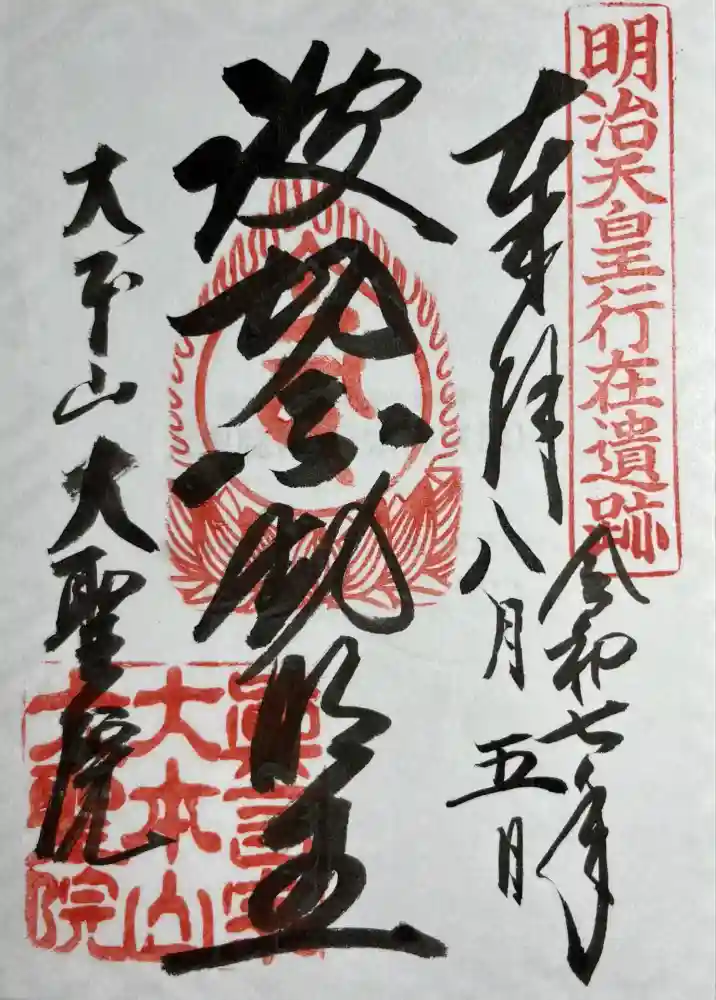 明治天皇行在遺跡
令和七年
奉拝 八月五日
波切不動明王
大本山 大聖院
真言宗
大本山
大聖院